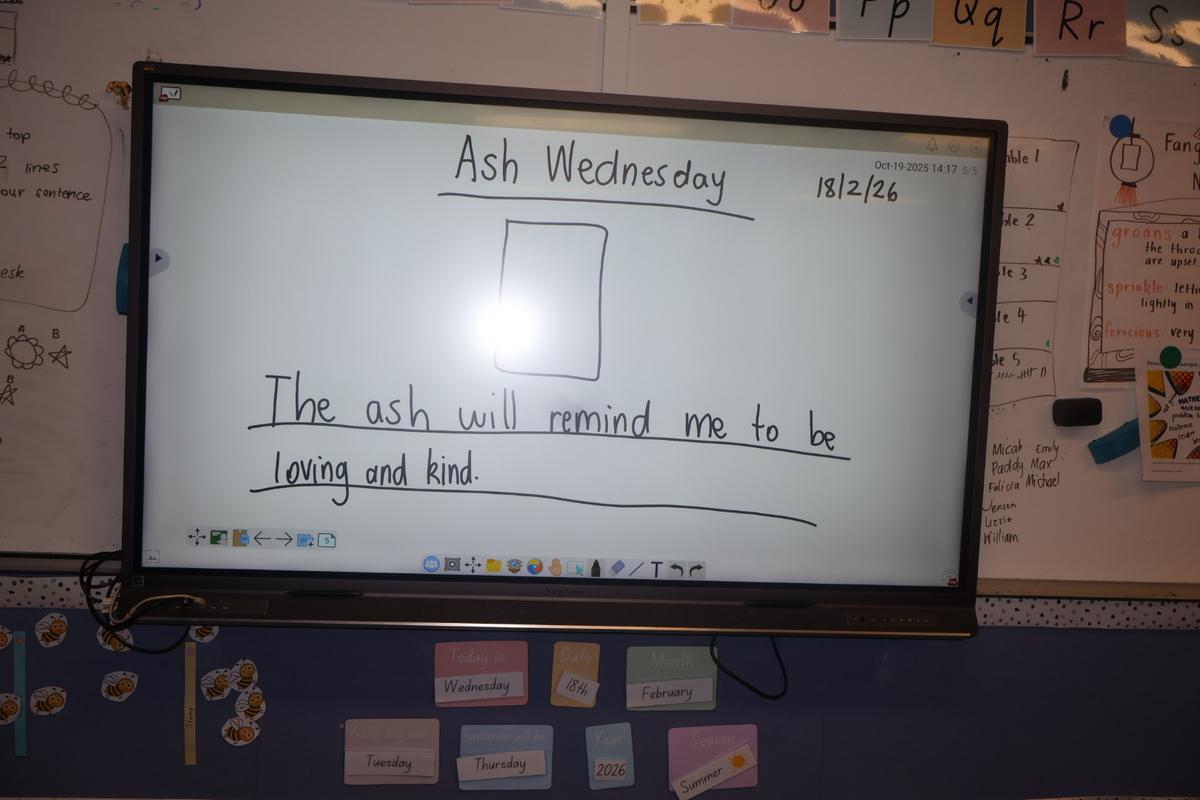 Pp
Qq
Rr
Ss
top
lines
our sentence
esk
A
B
B
Ash Wednesday
Oct-19-2025 14:17 5/5
18/2/26
The ash will remind me to be
loving and kind.
5
T
ble 1
ble 2
le 3
le 4
ble 5
Fang
groans: a
the throa
are upset
sprinkle: letti
lightly in
ferocious: very
Micah Emily
Paddy Max
Felicia Michael
Jensen
Lizzie
William
Today is:
Wednesday
Date
18th
Month
February
Yesterday was:
Tuesday
Tomorrow will be:
Thursday
Year
2026
Season
Summer